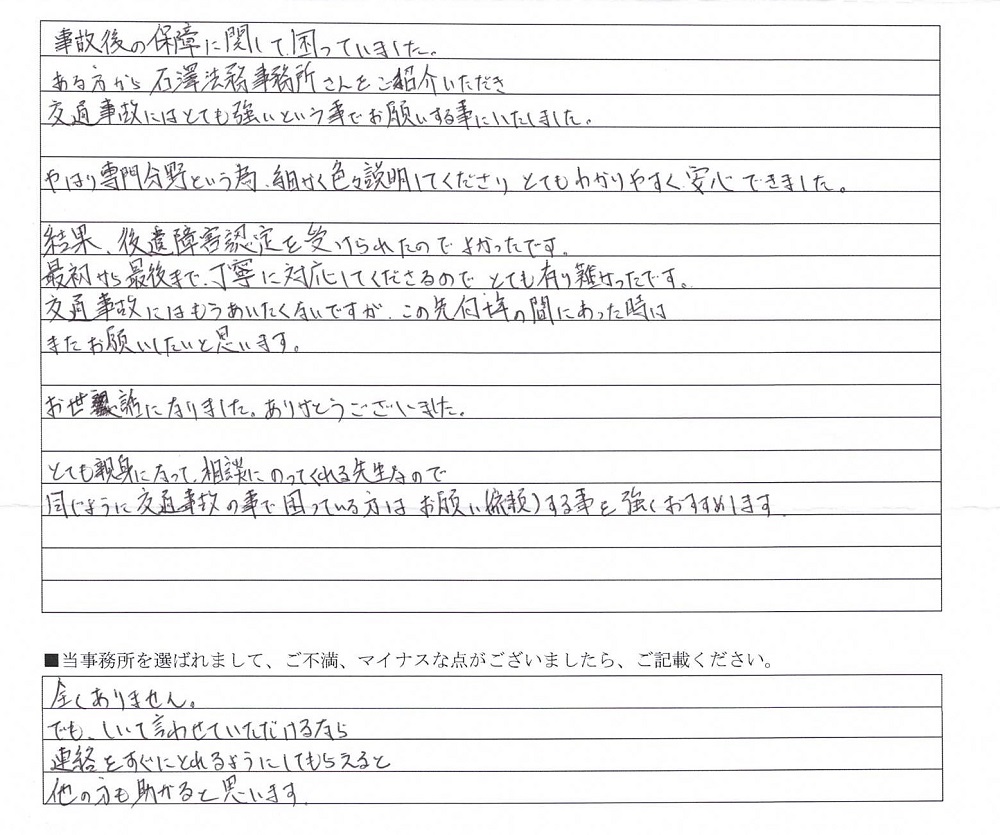 事故後の保障に関して困っていました。
ある方から石澤法務事務所さんをご紹介いただき
交通事故にはとても強いという事でお願いする事にいたしました。
やはり専門分野という為、細かく色々説明してくださり とてもわかりやすく安心できました。
結果、後遺障害認定を受けられたのでよかったです。
最初から最後まで、丁寧に対応してくださるのでとても有り難かったです。
交通事故にはもうあいたくないですが、この先何年の間にあった時は
またお願いしたいと思います。
お世話になりました。ありがとうございました。
とても親身になって、相談にのってくれる先生なので
同じように交通事故の事で困っている方は お願い(依頼)する事を強くおすすめします。
■当事務所を選ばれまして、ご不満、マイナスな点がございましたら、ご記載ください。
全くありません。
でも、しいて言わせていただけるなら
連絡をすぐにとれるようにしてもらえると
他の方も助かると思います。